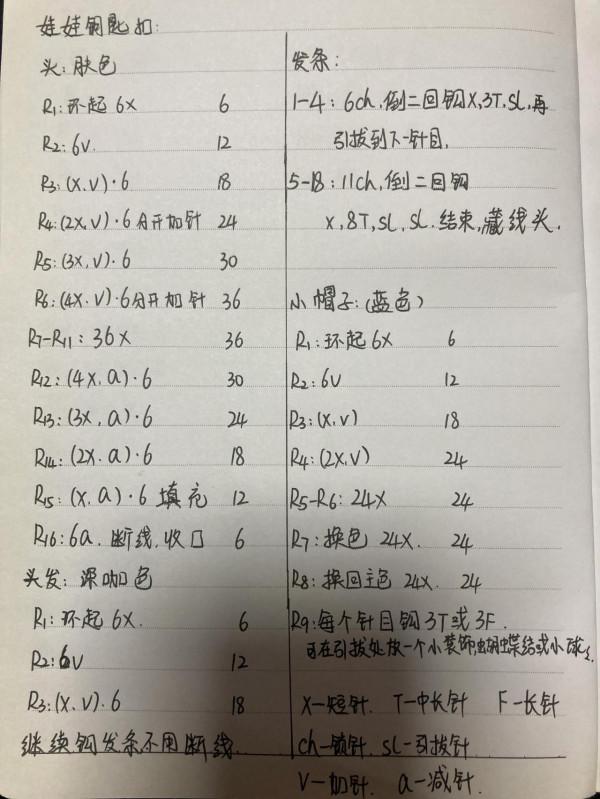 娃娃钥匙扣:
头: 肤色
R1: 环起 6X 6
R2: 6V. 12
R3: (X.V)·6 18
R4: (2X,V)·6分开加针 24
R5: (3X,V)·6 30
R6: (4X.V)·6分开加针 36
R7-R11: 36X 36
R12: (4X.A)·6 30
R13: (3X,A)·6 24
R14: (2X.A)·6 18
R15: (X.A)·6 填充 12
R16: 6A. 断线.收口 6
头发: 深咖色
R1: 环起 6X. 6
R2: 6V 12
R3: (X.V)·6 18
继续钩发条不用断线.
发条:
1-4: 6ch,倒二回钩X,3T,SL,再
引拔到下一针目.
5-18: 11ch,倒二回钩
X,8T,SL,SL.结束,藏线头.
小帽子:(蓝色)
R1: 环起6X 6
R2: 6V 12
R3: (X,V) 18
R4: (2X,V) 24
R5-R6: 24X 24
R7: 换色 24X. 24
R8: 换回主色 24X. 24
R9: 每个针目钩3T或3F.
可在引拔处放一个小装饰蝴蝶结或小球
X-短针. T-中长针 F-长针
ch-锁针. SL-引拔针
V-加针. A-减针.